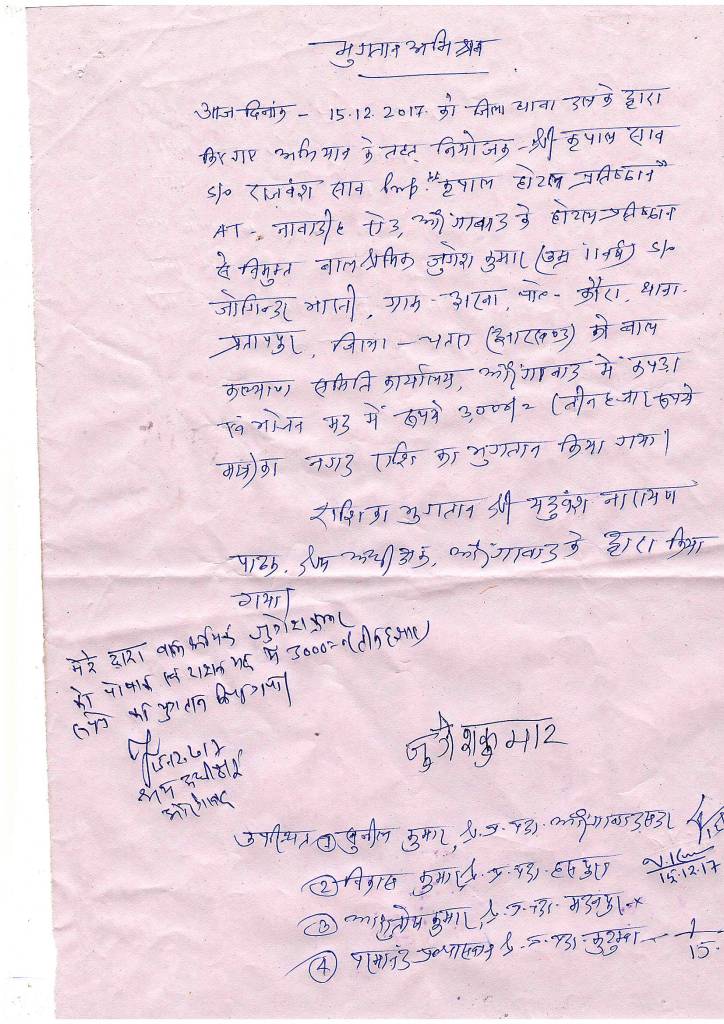 भुगतान अभिश्रव
आज दिनांक - 15.12.2017 को जिला धावा दल के द्वारा
किए गए अभियान के तहत नियोजक - श्री कृपाल साव
S/o राजवंश साव कृपाल होटल प्रतिष्ठान
AT - नावाडीह रोड, औरंगाबाद के होटल प्रतिष्ठान
से विमुक्त बाल श्रमिक जुगेश कुमार (उम्र 11 वर्ष) S/o
जोगिन्दर भारती, ग्राम - अरना, पो०- कौरा, थाना-
प्रतापपुर, जिला - चतरा (झारखण्ड) को बाल
कल्याण समिति कार्यालय, औरंगाबाद में कपड़ा
एवं भोजन मद में रूपये 3,000/= (तीन हजार रूपये
मात्र) का नगद राशि का भुगतान किया गया।
राशि का भुगतान श्री यदुवंश नारायण
पाठक, श्रम अधीक्षक, औरंगाबाद के द्वारा किया
गया।
मेरे द्वारा बाल श्रमिक जुगेश कुमार
को पोषाक एवं राशन मद में 3000=00 (तीन हजार)
रूपये का भुगतान किया गया।
15.12.2017
श्रम अधीक्षक
औरंगाबाद
जुगेश कुमार
उपस्थित ① सुनील कुमार, श्र.प्र.पदा. औरंगाबाद सदर
② विकास कुमार श्र.प्र.पदा. हसपुरा
15.12.17
③ आशुतोष कुमार, श्र.प्र.पदा. मदनपुर
④ परमानंद श्र.प्र.पदा. कुटुम्बा
15.